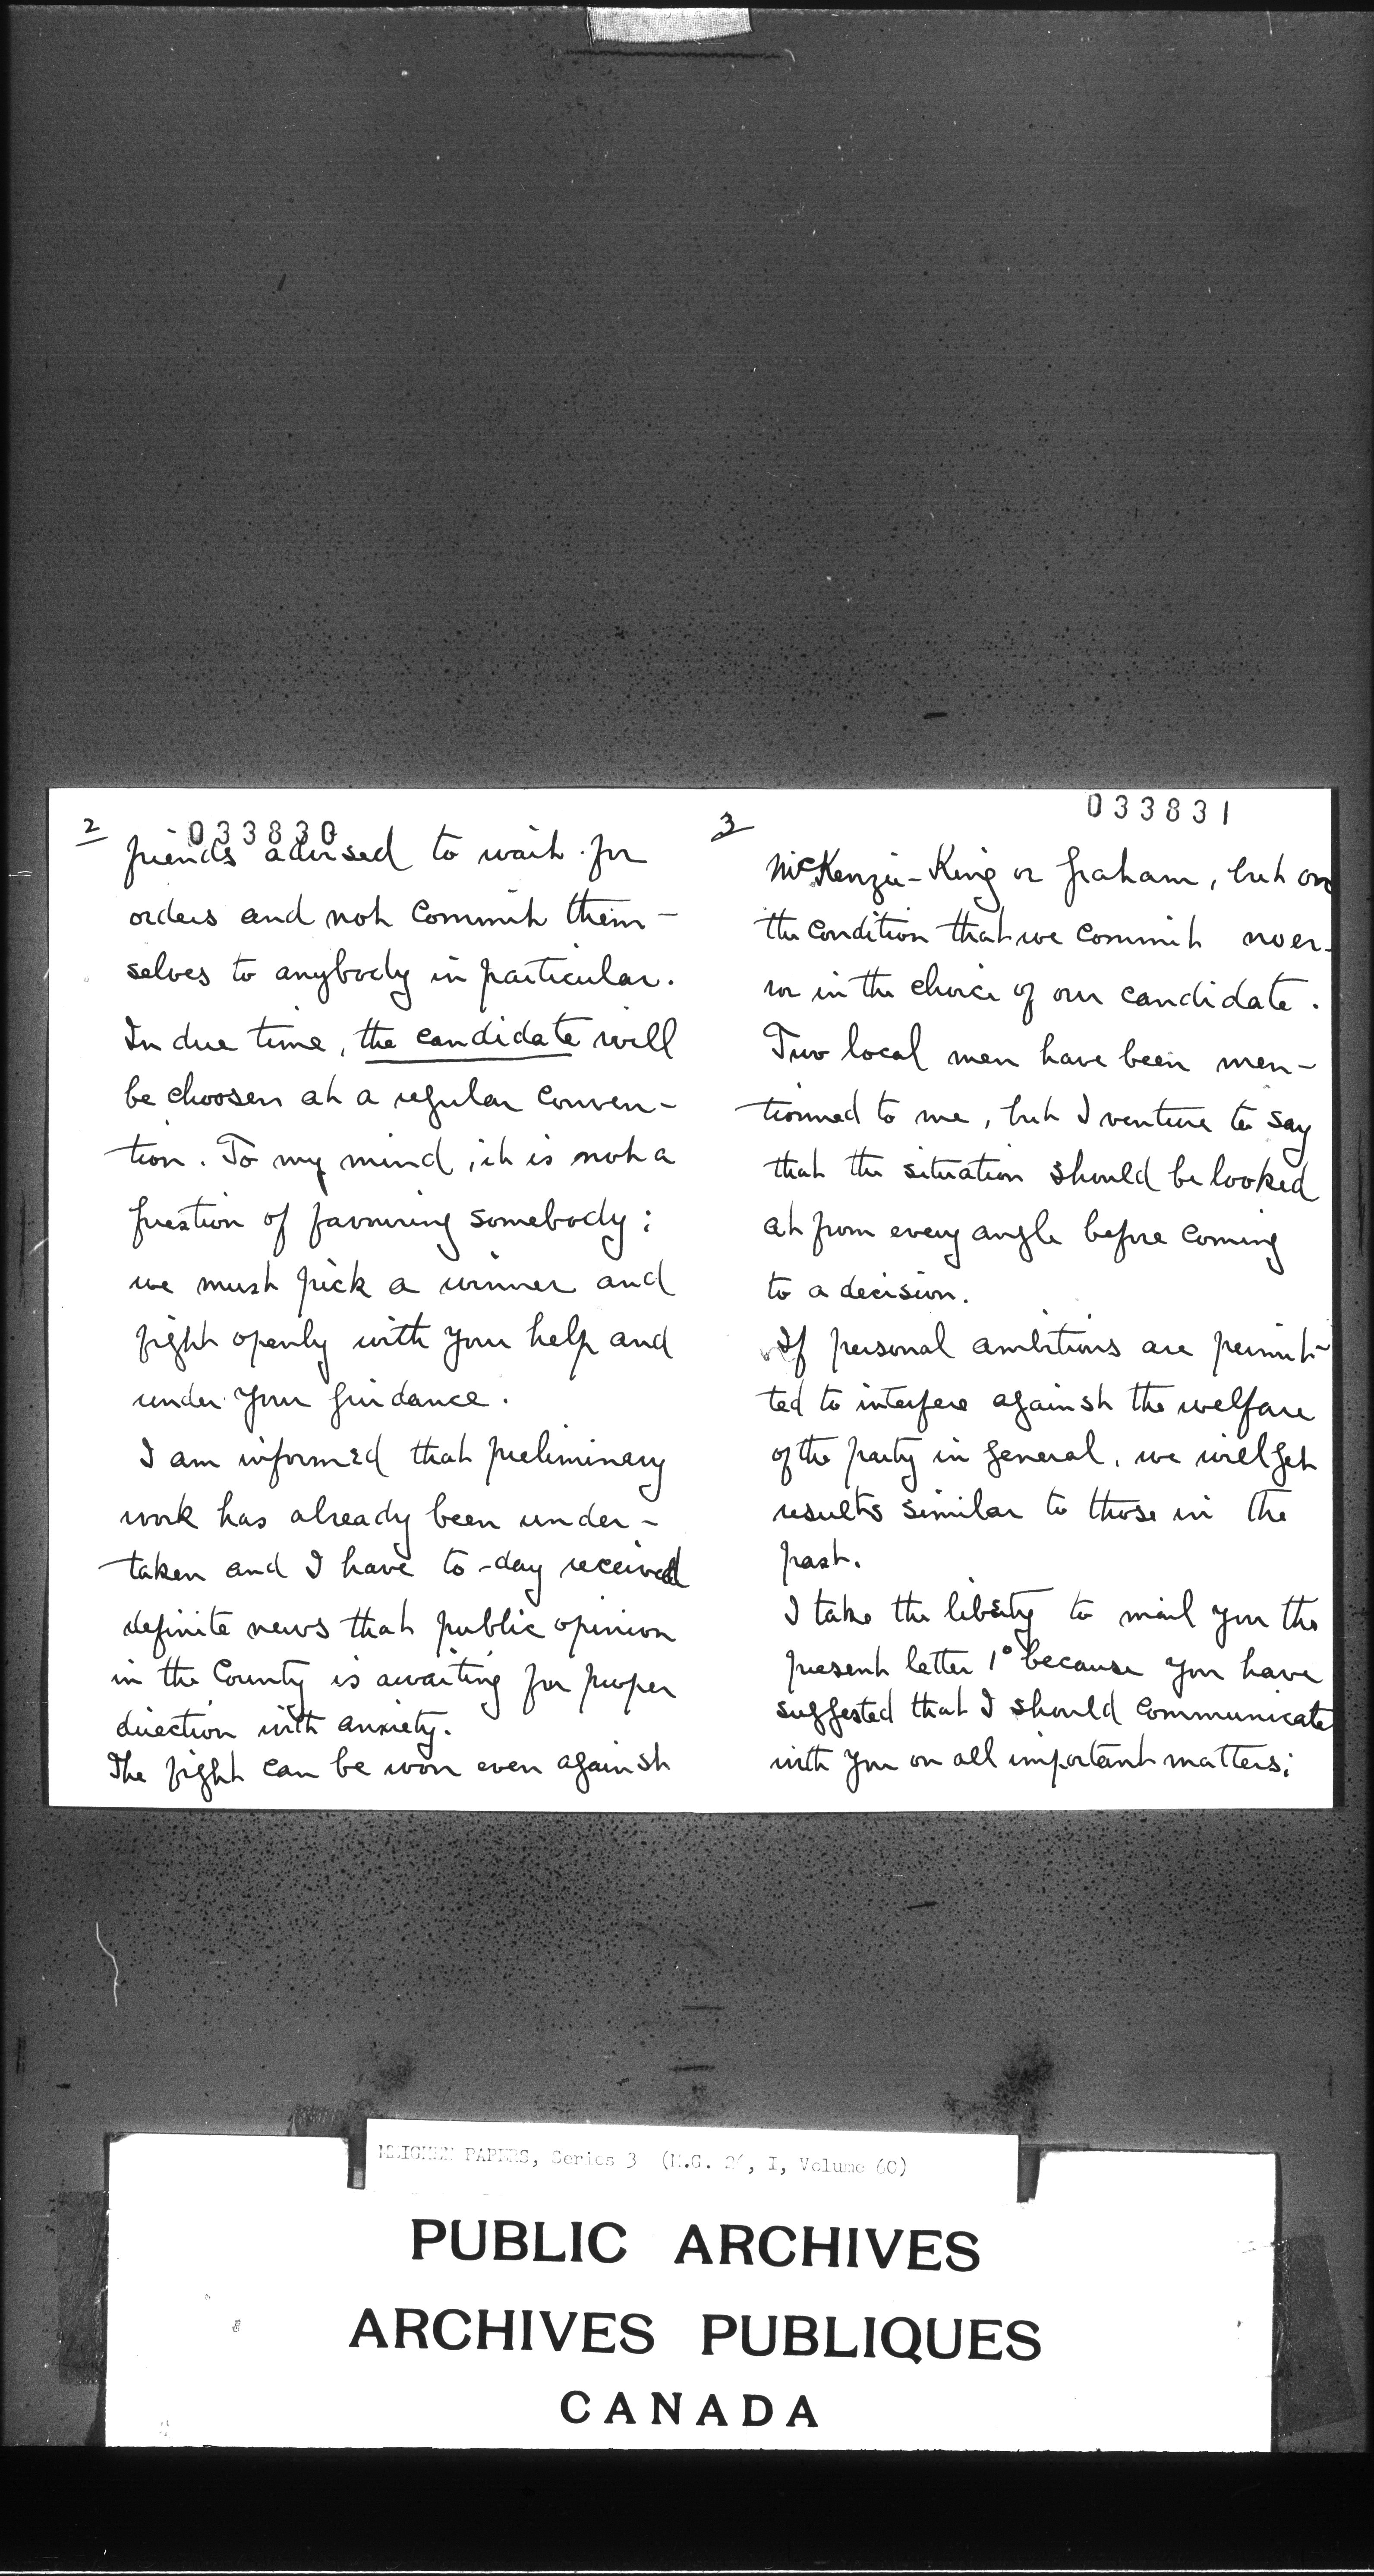 2
033830
friends advised to wait for
orders and not commit them-
selves to anybody in particular.
In due time, the candidate will
be choosen at a regular conven-
tion. To my mind, it is not a
question of favouring somebody:
we must pick a winner and
fight openly with your help and
under your guidance.
I am informed that preliminary
work has already been under-
taken and I have to-day received
definite news that public opinion
in the County is awaiting for proper
direction with anxiety.
The fight can be won even against
3
033831
McKenzie-King or Graham, but on
the condition that we commit no er-
ror in the choice of our candidate.
Two local men have been men-
tionned to me, but I venture to say
that the situation should be looked
at from every angle before coming
to a decision.
If personal ambitions are permit-
ted to interfere against the welfare
of the party in general, we will get
results similar to those in the
past.
I take the liberty to mail you the
present letter 1° because you have
suggested that I should communicate
with you on all important matters;
MEIGHEN PAPERS, Series 3 (M.G. 26, I, Volume 60)
PUBLIC ARCHIVES
ARCHIVES PUBLIQUES
CANADA